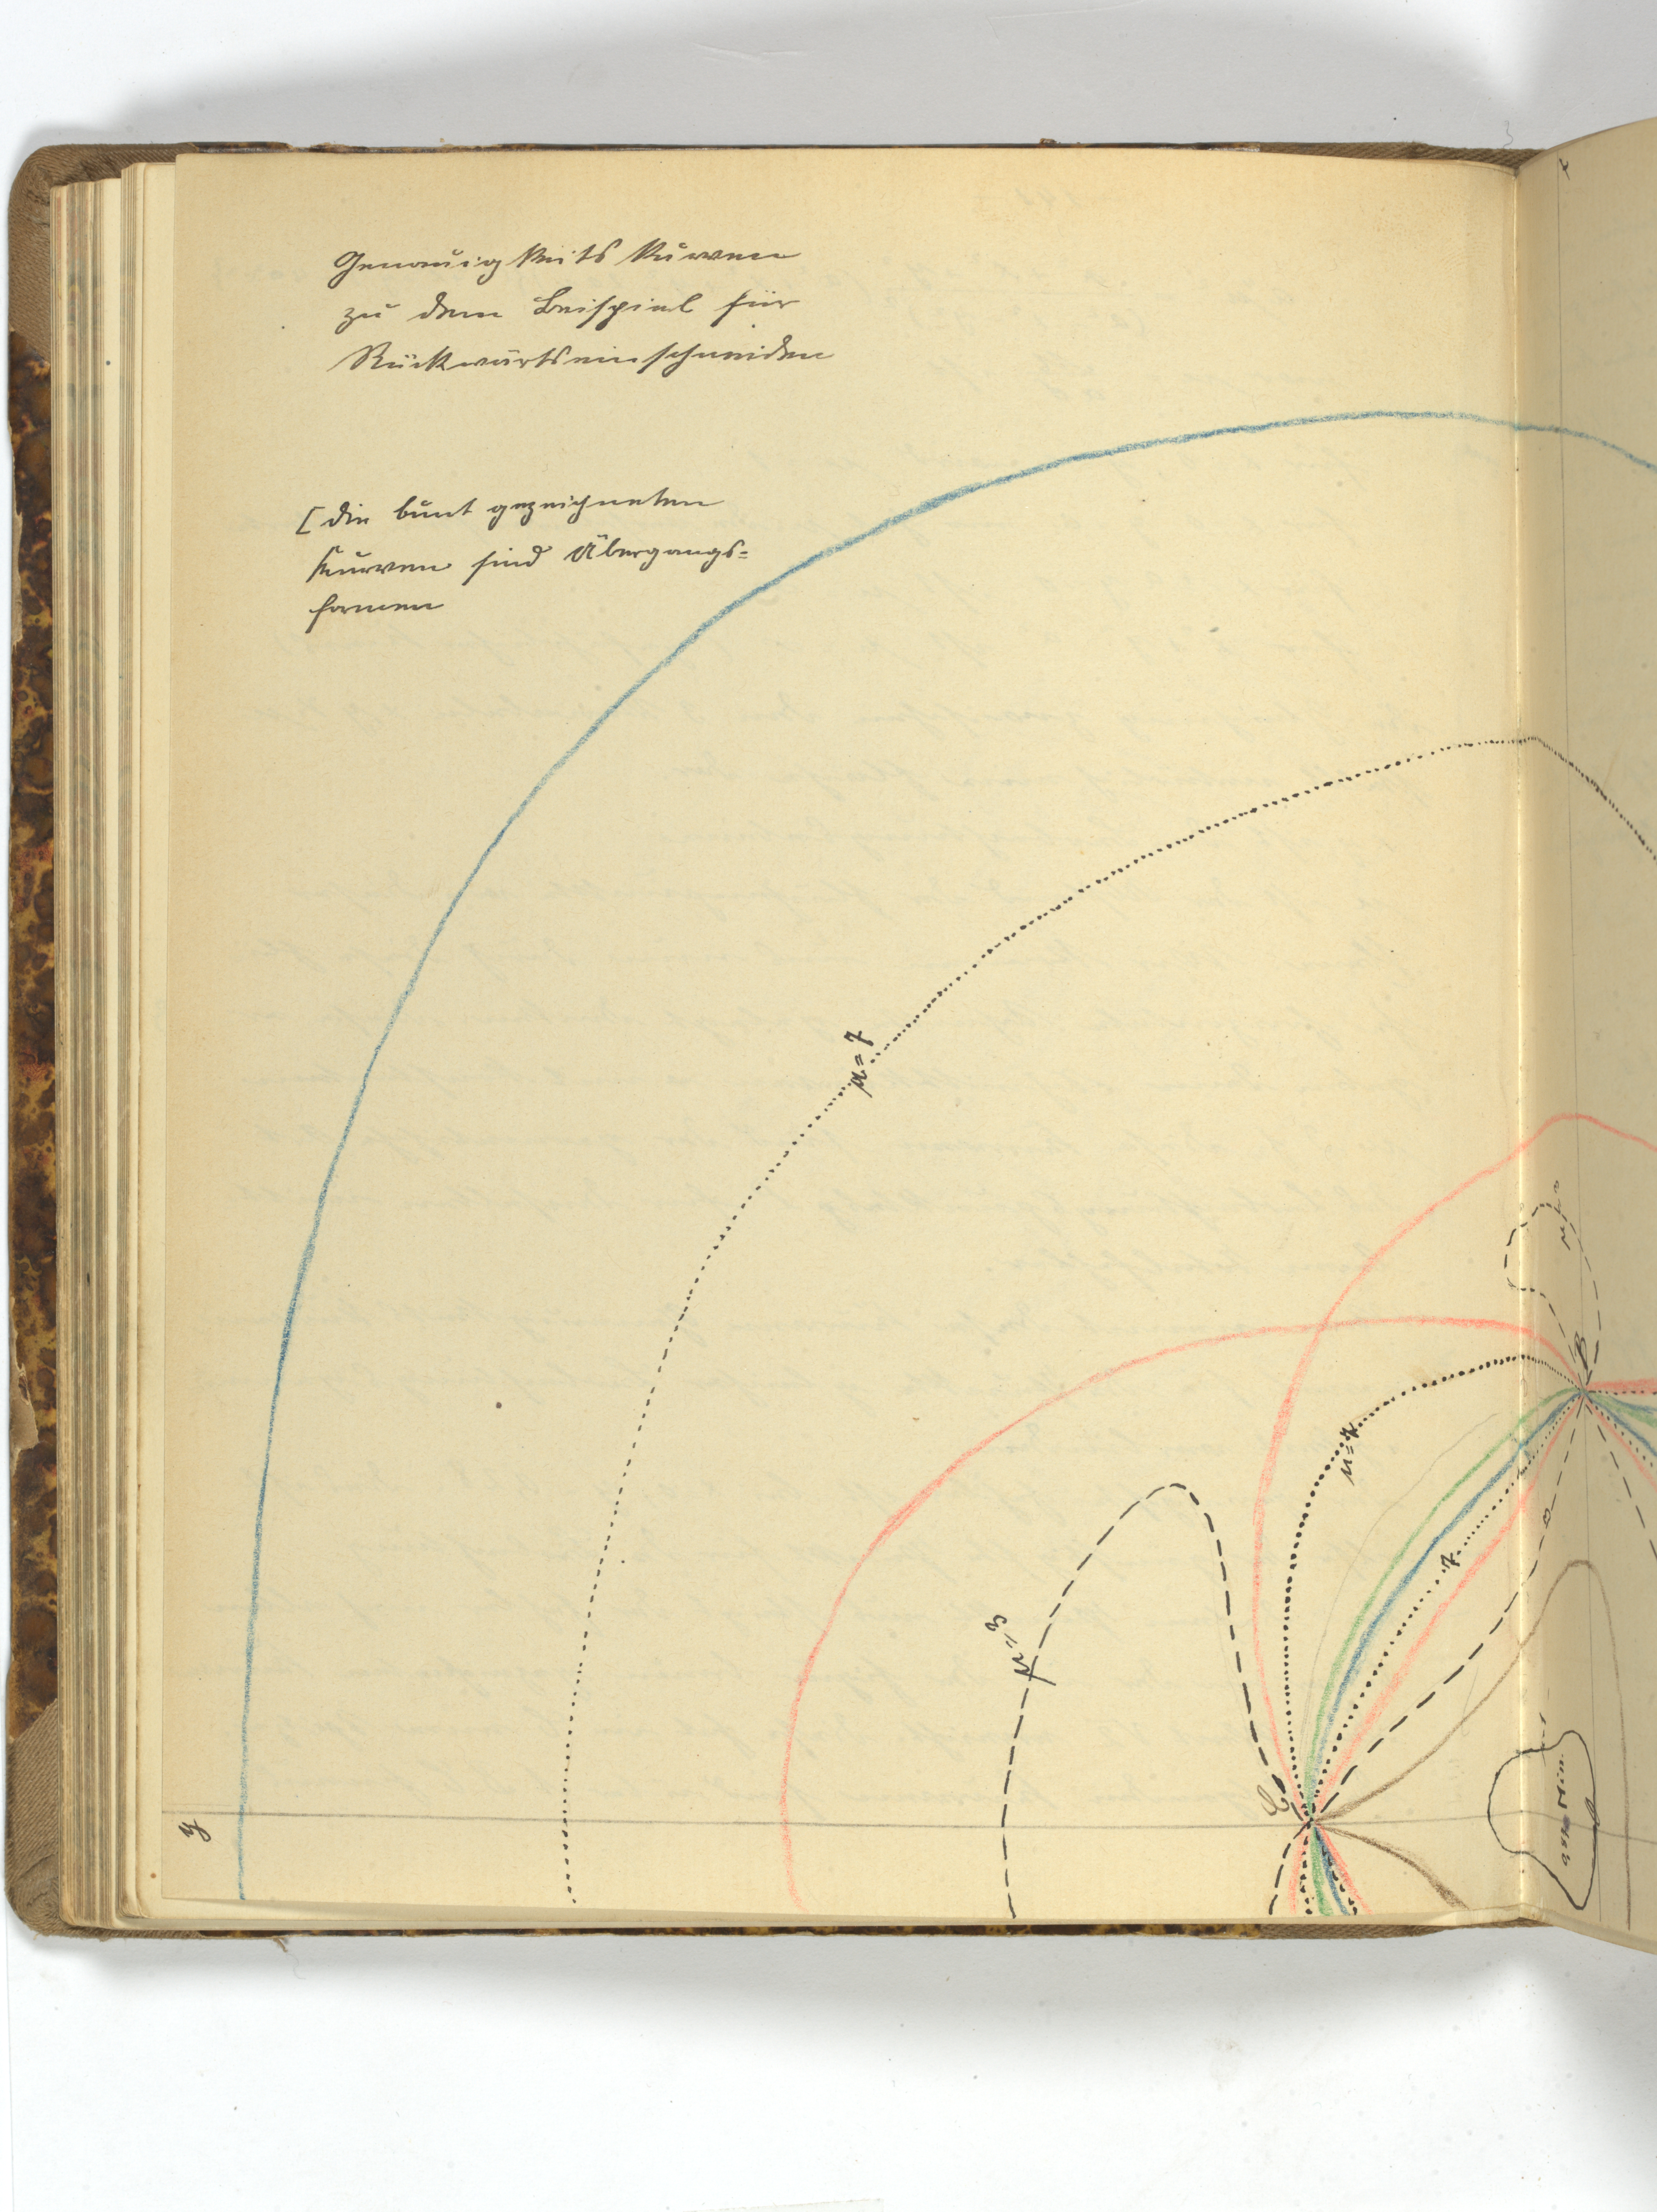 Genauigkeits Kurven
zu dem Beispiel für
Rückwärtseinschneiden
[die bunt gezeichneten
Kurven sind Übergangs=
formen
μ=7
μ=3
μ=7
7
B
C
y
x
abs. Min.